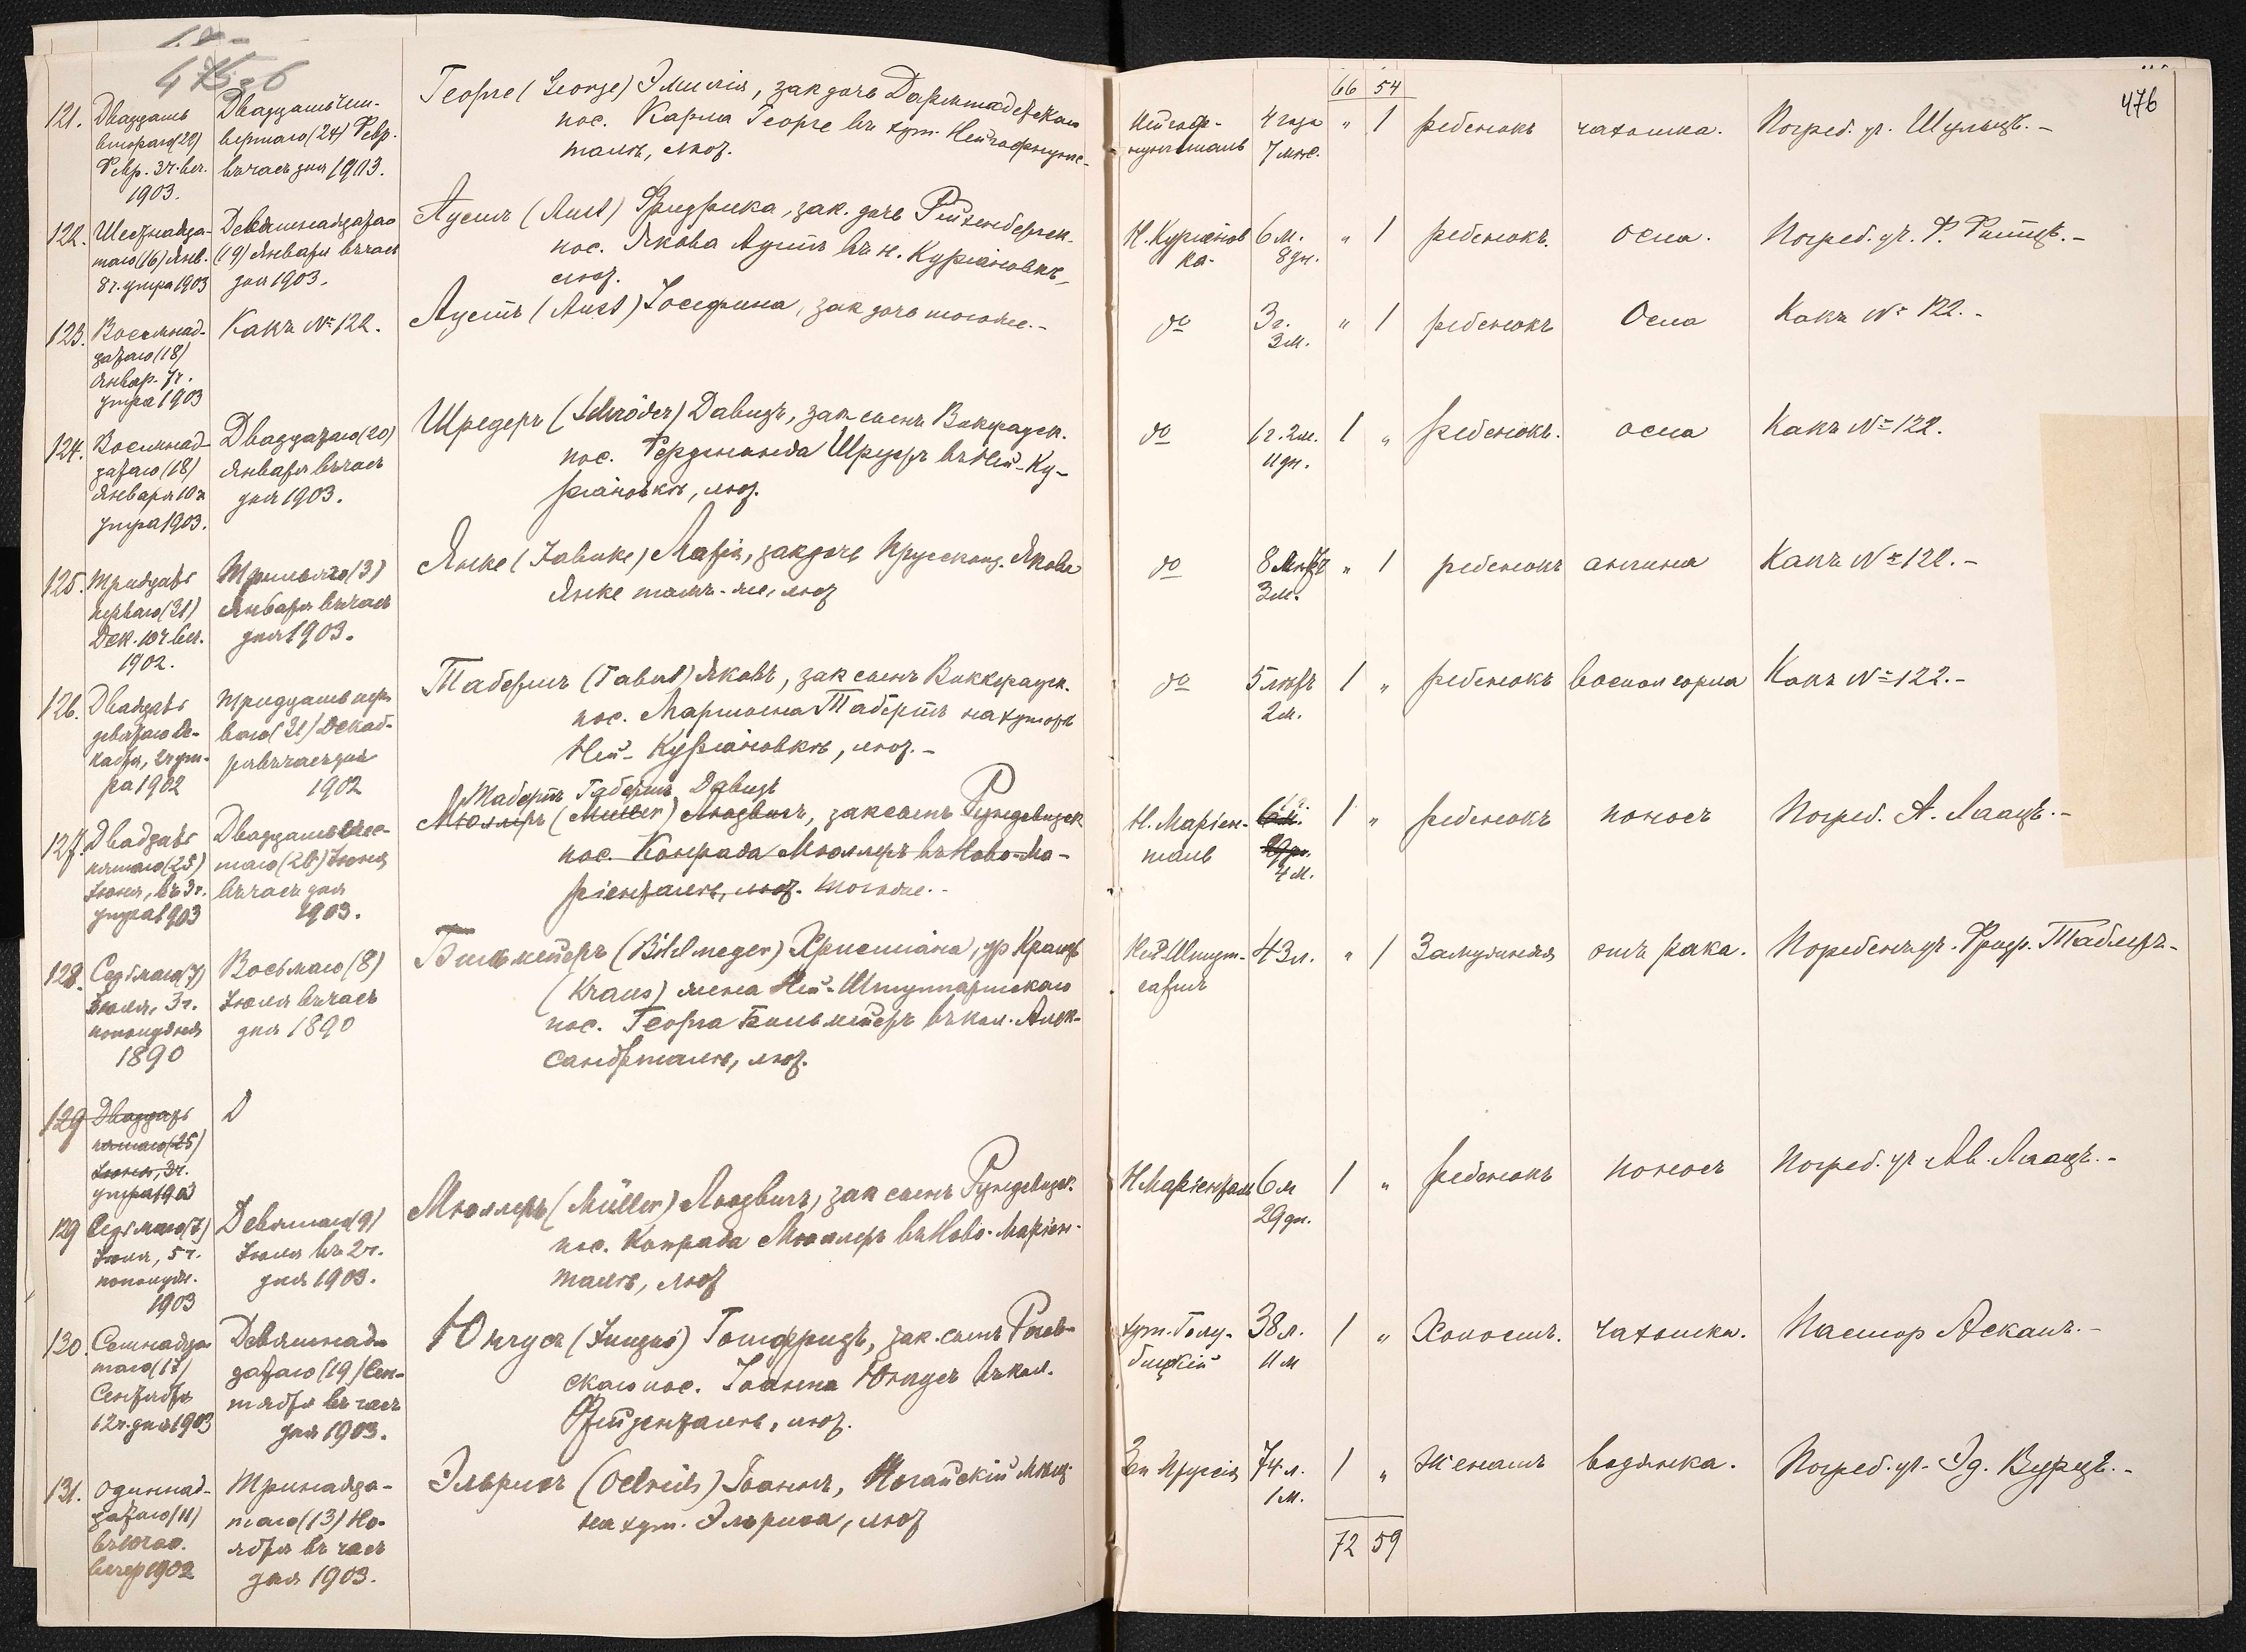 475 об
476
66 54
121. Двадцать
втораго (22)
Февр. 3 ч. веч.
1903.
Двадцать чет-
вертаго (24) Февр.
въ часъ дня 1903.
Георге (George) Эмилія, зак дочь Дармштадтскаго
пос. Карла Георге въ хут. Нейгофнунгс-
талѣ, лют.
Нейгоф-
нунгсталь
4 года
7 мѣс.
" 1 ребенокъ чахотка. Погреб. уч. Шульцъ. -
122. Шестнадца-
таго (16) Янв.
8 ч. утра 1903
Девятнадцатаго
(19) Января въ часъ
дня 1903.
Аустъ (Aust) Фридрика, зак. дочь Рейхенбергск.
пос. Якова Аустъ въ н. Куріановкѣ,
лют.
Н. Куріанов
ка-
6 м.
8 дн.
" 1 ребенокъ. оспа. Погреб. уч. Ф. Ритцъ. -
123. Восемнад-
цатаго (18)
Январ. 7 ч.
утра 1903
Какъ № 122.
Аустъ (Aust) Іосефина, зак дочь тогоже. -
do 3 г.
3 м.
" 1 ребенокъ Оспа Какъ № 122. -
124. Восемнад-
цатаго (18)
Января 10 ч
утра 1903.
Двадцатаго (20)
Января въ часъ
дня 1903.
Шредеръ (Schröder) Давидъ, зак сынъ Викерауск.
пос. Фердинанда Шредеръ въ Ней-Ку-
ріановкѣ, лют.
do 1 г. 2 м.
11 дн.
1 " ребенокъ. оспа Какъ № 122.
125. Тридцать
перваго (31)
Дек. 10 ч. веч.
1902.
Третьяго (3)
Января въ часъ
дня 1903.
Янке (Jahnke) Марія, зак дочь Прусскопод. Якова
Янке тамъ-же, лют
do 8 лѣтъ
3 м.
" 1 ребенокъ ангина Какъ № 122. -
126. Двадцать
девятаго Де-
кабря, 2 ч ут-
ра 1902
Тридцать пер
ваго (31) Декаб-
ря въ часъ дня
1902
Табертъ (Tabert) Яковъ, зак сынъ Виккерауск.
пос. Мартына Табертъ на хуторѣ
Ней-Куріановкѣ, лют. -
do 5 лѣтъ
2 м.
1 " ребенокъ воспал горла Какъ № 122. -
127. Двадцать
пятаго (25)
Іюня, въ 3 ч.
утра 1903
Двадцать шес-
таго (26) Іюня
въ часъ дня
1903.
Табертъ Табертъ Давидъ
Мюллеръ (Müller) Людвигъ, зак сынъ Рундевизск
пос. Конрада Мюллеръ въ Ново-Ма-
ріенталѣ, лют. тогоже. -
Н. Маріен-
таль
6 м.
29 дн.
4 м.
1 " ребенокъ поносъ Погреб. А. Лаацъ. -
128. Седьмаго (7)
Іюля, 3 ч.
пополудня
1890
Восьмаго (8)
Іюля въ часъ
дня 1890
Бильмейеръ (Bihlmeyer) Христіана, ур Краусъ
(Kraus) жена Ней-Штутгартскаго
пос. Георга Бильмейеръ въ кол. Алек-
сандрталѣ, лют.
Ней-Штут-
гартъ
43 л. " 1 Замужняя отъ рака. Погребенъ уч. Фридр. Таблеръ -
129 Двадцать
пятаго (25)
Іюня, 3 ч.
утра 1903
D
129 Седьмаго (7)
Іюля, 5 ч.
пополудн.
1903
Девятаго (9)
Іюля въ 2 ч.
дня 1903.
Мюллеръ (Müller) Людвигъ, зак сынъ Рундевизск.
пос. Конрада Мюллеръ въ Ново-Маріен-
талѣ, лют
Н Маріенталь 6 м
29 дн.
1 " ребенокъ поносъ Погреб. уч Ав. Лаацъ. -
130. Семнадца
таго (17)
Сентября
12 ч. дня 1903
Девятнад-
цатаго (19) Сен-
тября въ часъ
дня 1903.
Юнгусъ (Jungus) Готфридъ, зак. сынъ
скаго пос. Іоанна Юнгусъ въ кол.
Фриденталѣ, лют.
хут. Голу-
бицкій
38 л.
11 м
1 " Холостъ. Чахотка. Пастор Асканъ. -
131. Одиннад-
цатаго (11)
въ 10 час.
вечер 1902
Тринадца-
таго (13) Но-
ября въ часъ
дня 1903.
Эльрихъ (Oelrich) Іоаннъ, Ногайскій мѣщ
на хут. Эльриха, лют
Зп Пруссія 74 л.
1 м.
1 " Женатъ водянка. Погреб. уч. Эд. Вурцъ. -
72 59